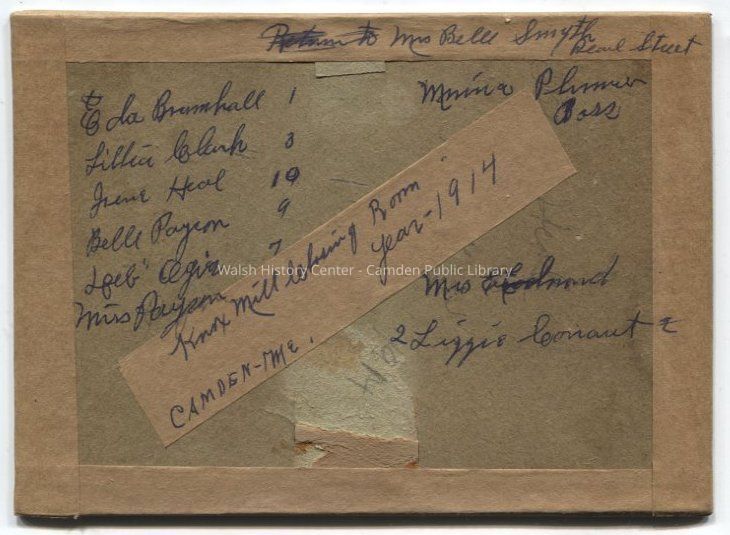 Return to Mrs Belle Smyth
Pearl Street
Eda Bramhall 1
Lillia Clark 3
Irene Heal 10
Belle Payson 9
"Loeb" 7
Miss Payson
Minnie Plummer
Knox Mill Room
Year-1914
CAMDEN-ME.
Mrs
2 Lizzie Conant
Walsh History Center - Camden Public Library